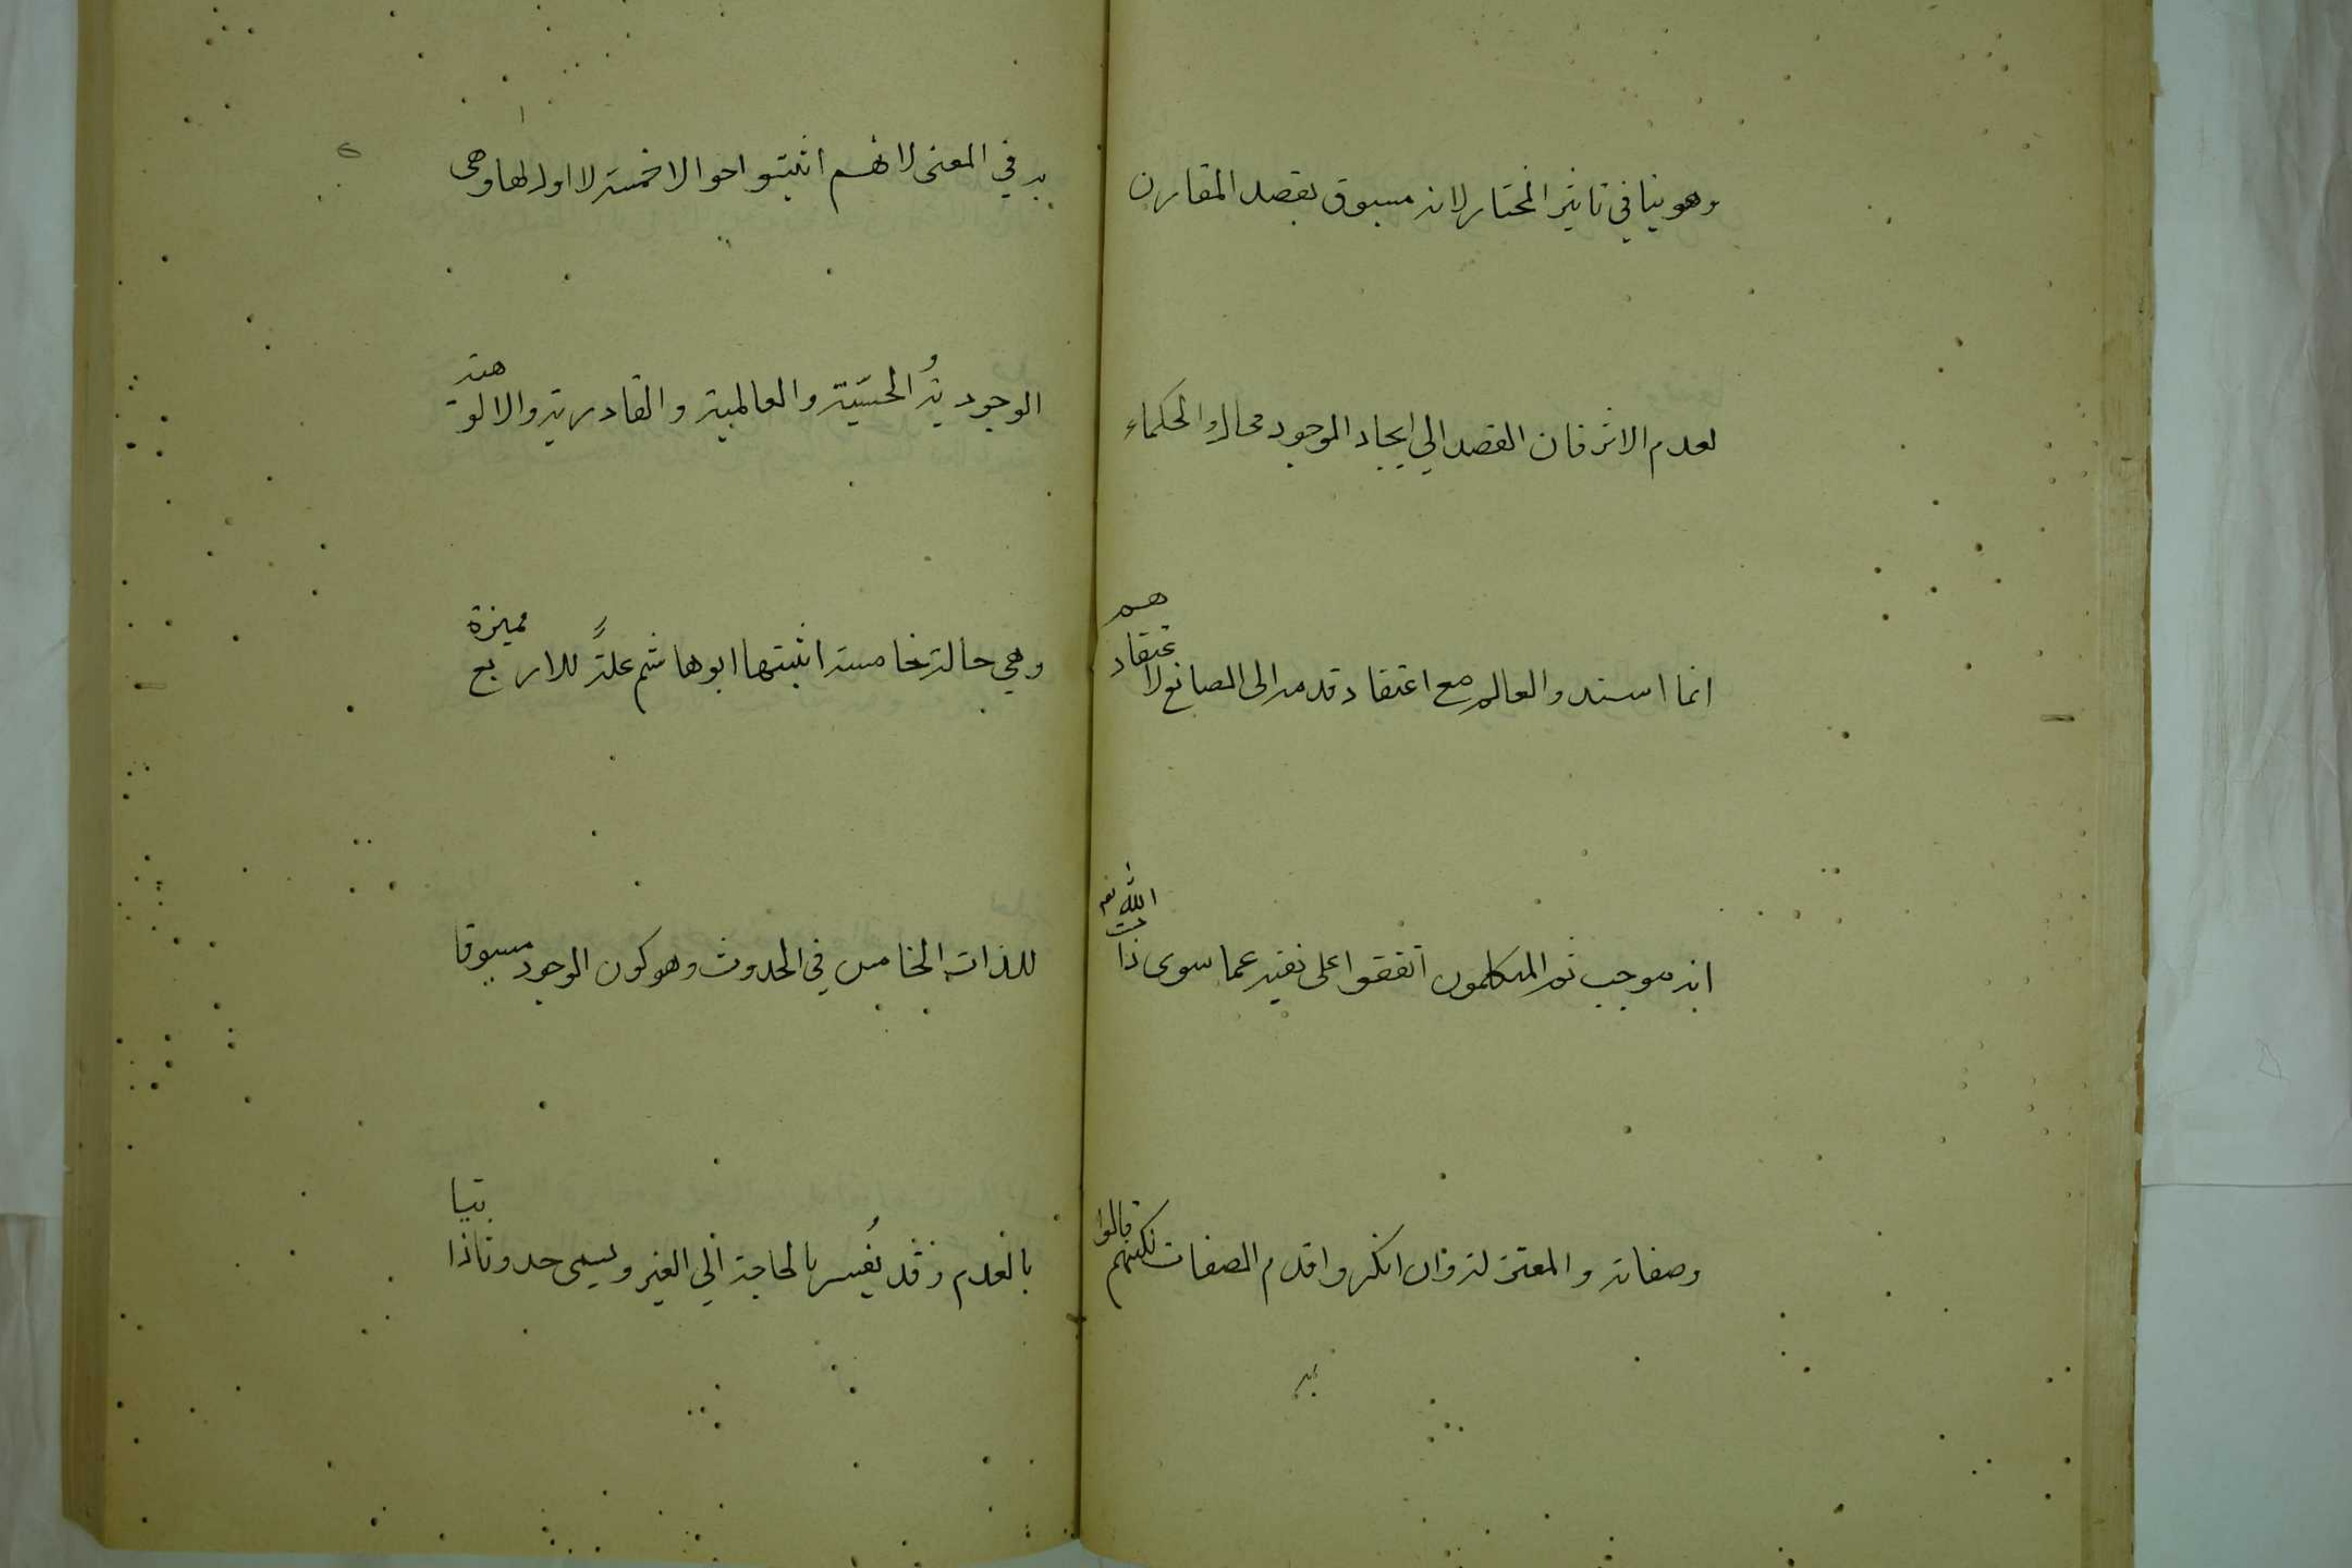 وهو ينافي تاثير المختار لانه مسبوق بقصد المقارن
لعدم الاثر فان القصد الي ايجاد الموجود محال والحكماء
انما اسندوا العالم مع اعتقاد قدمه الى الصانع لاعتقادهم
انه موجب ثم المتكلمون اتفقوا على نفيه عما سوى ذات الله تع
وصفاته والمعتزلة وان انكروا قدم الصفات لكنهم قالوا
به
به في المعنى لانهم اثبتوا احوالا خمسة لا اول لها وهي
الوجودية والحييّة والعالمية والقادرية والالوهية
وهي حالة خامسة اثبتها ابو هاشم علةً للاربع مميزة
للذات الخامس في الحدوث وهو كون الوجود مسبوقا
بالعدم وقد يُفسر بالحاجة الي الغير ويسمى حدوثا ذاتيا